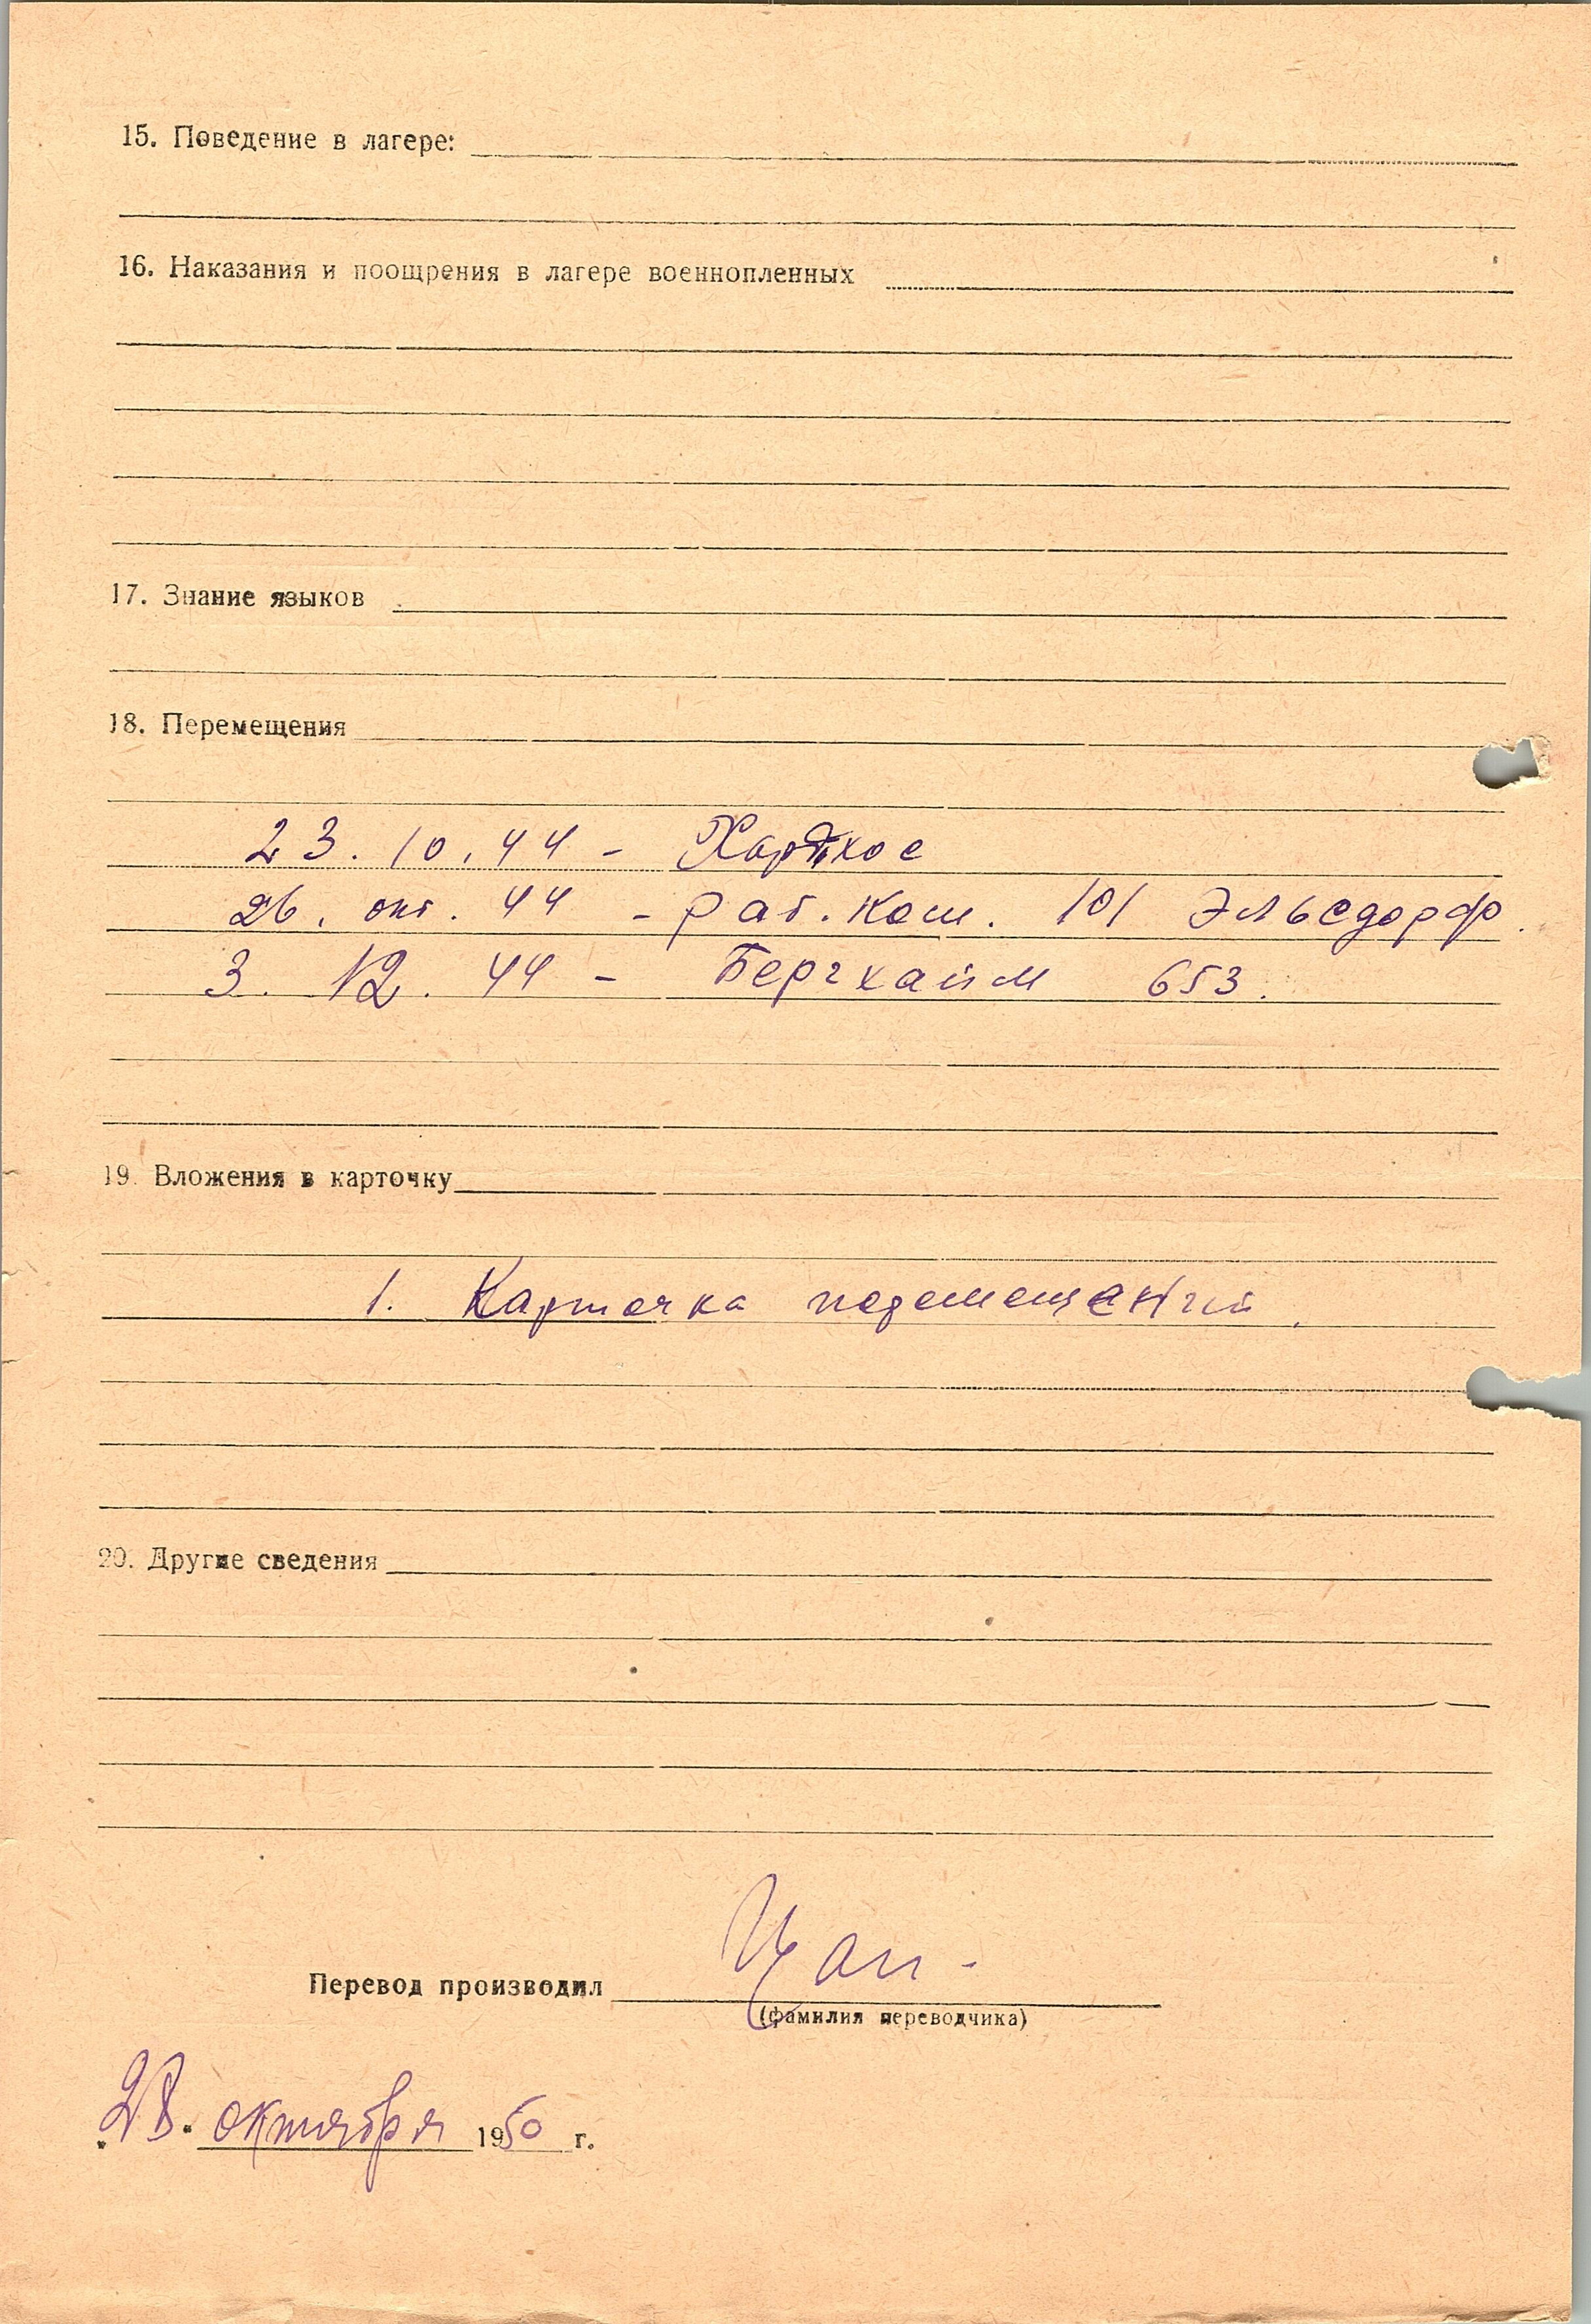 15. Поведение в лагере:
16. Наказания и поощрения в лагере военнопленных
17. Знание языков
18. Перемещения
23. 10. 44 -
26. окт. 44 - раб. ком. 101 Эльсдорф.
3. 12. 44 - Бергхайм 653.
19. Вложения в карточку
1. Карточка перемещений.
20. Другие сведения
Перевод производил
(фамилия переводчика)
„28" октября 1950 г.